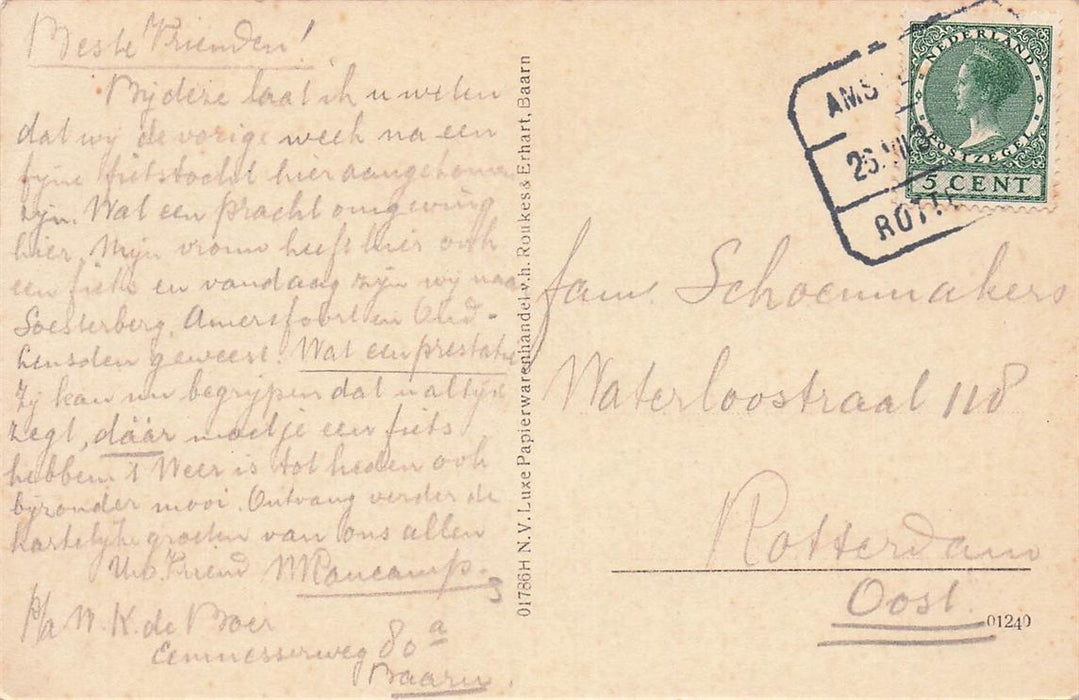 Beste Vrienden!
Bij deze laat ik u weten
dat wij de vorige week na een
fijne fietstocht hier aangekomen
zijn. Wat een pracht omgeving
hier. Mijn vrouw heeft hier ook
een fiets en vandaag zijn wij naar
Soesterberg, Amersfoort en Oud-
Leusden geweest. Wat een prestatie
Zij kan nu begrijpen dat u altijd
zegt, dáár moet je een fiets
hebben. 't Weer is tot heden ook
bijzonder mooi. Ontvang verder de
hartelijke groeten van ons allen
Uw Vriend
p/a W. K. de Boer
Eemnesserweg 80a
Baarn.
01786H N.V. Luxe Papierwarenhandel v.h. Roukes & Erhart, Baarn
NEDERLAND
POSTZEGEL
5 CENT
AMS
ROTTE
fam. Schoenmakers
Waterloostraat 118
Rotterdam
Oost.
01240